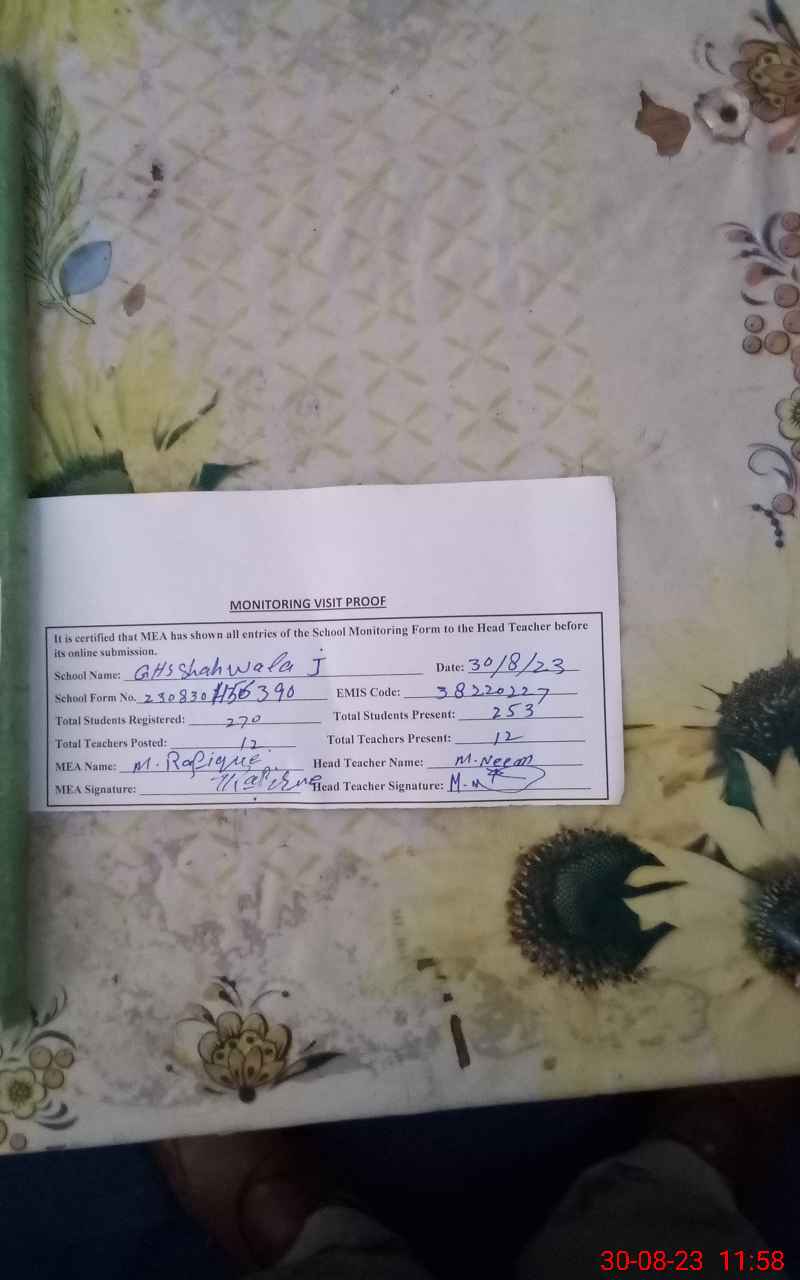 MONITORING VISIT PROOF
It is certified that MEA has shown all entries of the School Monitoring Form to the Head Teacher before
its online submission.
School Name: GHS Shah Wala J Date: 30/8/23
School Form No. 230830 390 EMIS Code: 38220227
Total Students Registered: 270 Total Students Present: 253
Total Teachers Posted: 12 Total Teachers Present: 12
MEA Name: M. Rafique Head Teacher Name: M. Neem
MEA Signature: Head Teacher Signature: M.
30-08-23 11:58